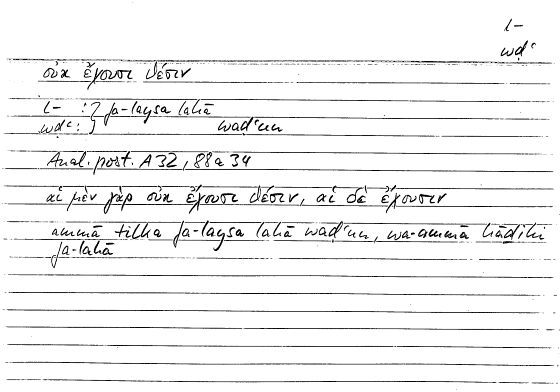 l-
wḍʿ
οὐκ ἔχουσι θέσιν
l- : } fa-laysa lahā
wḍʿ : } waḍʿun
Anal. post. A 32, 88 a 34
αἱ μὲν γὰρ οὐκ ἔχουσι θέσιν, αἱ δὲ ἔχουσιν
ammā tilka fa-laysa lahā waḍʿun, wa-ammā hāḏihi
fa-lahā